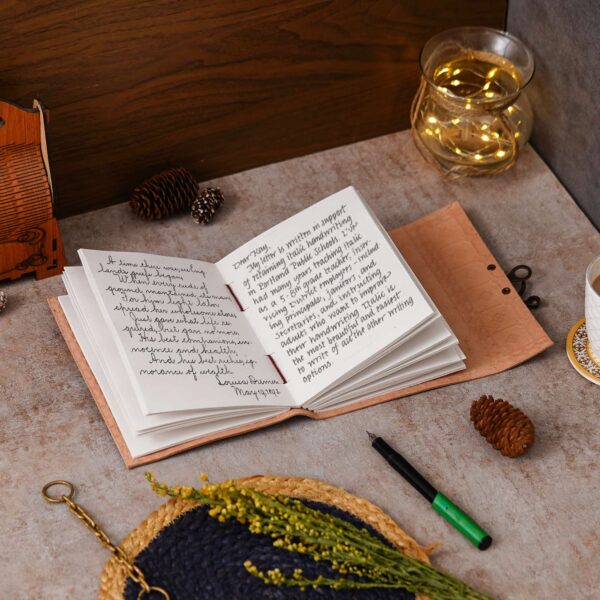 A time there was, ere
England's griefs began,
When every rood of
ground
For him light labor
spread her wholesome store,
Just gave what life re-
quired, but gave no more;
His best companions, in-
nocence and health,
And his best riches, ig-
norance of wealth.
May
Dear Kay,
My letter is written in support
of retaining italic handwriting
in Portland Public Schools. I've
had many years teaching italic
as a 5-6th grade teacher, inser-
vicing District employees includ-
ing principals, janitors, and
secretaries, and instructing
adults who want to improve
their handwriting. Italic is
the most beautiful and easiest
to write of all the other writing
options.